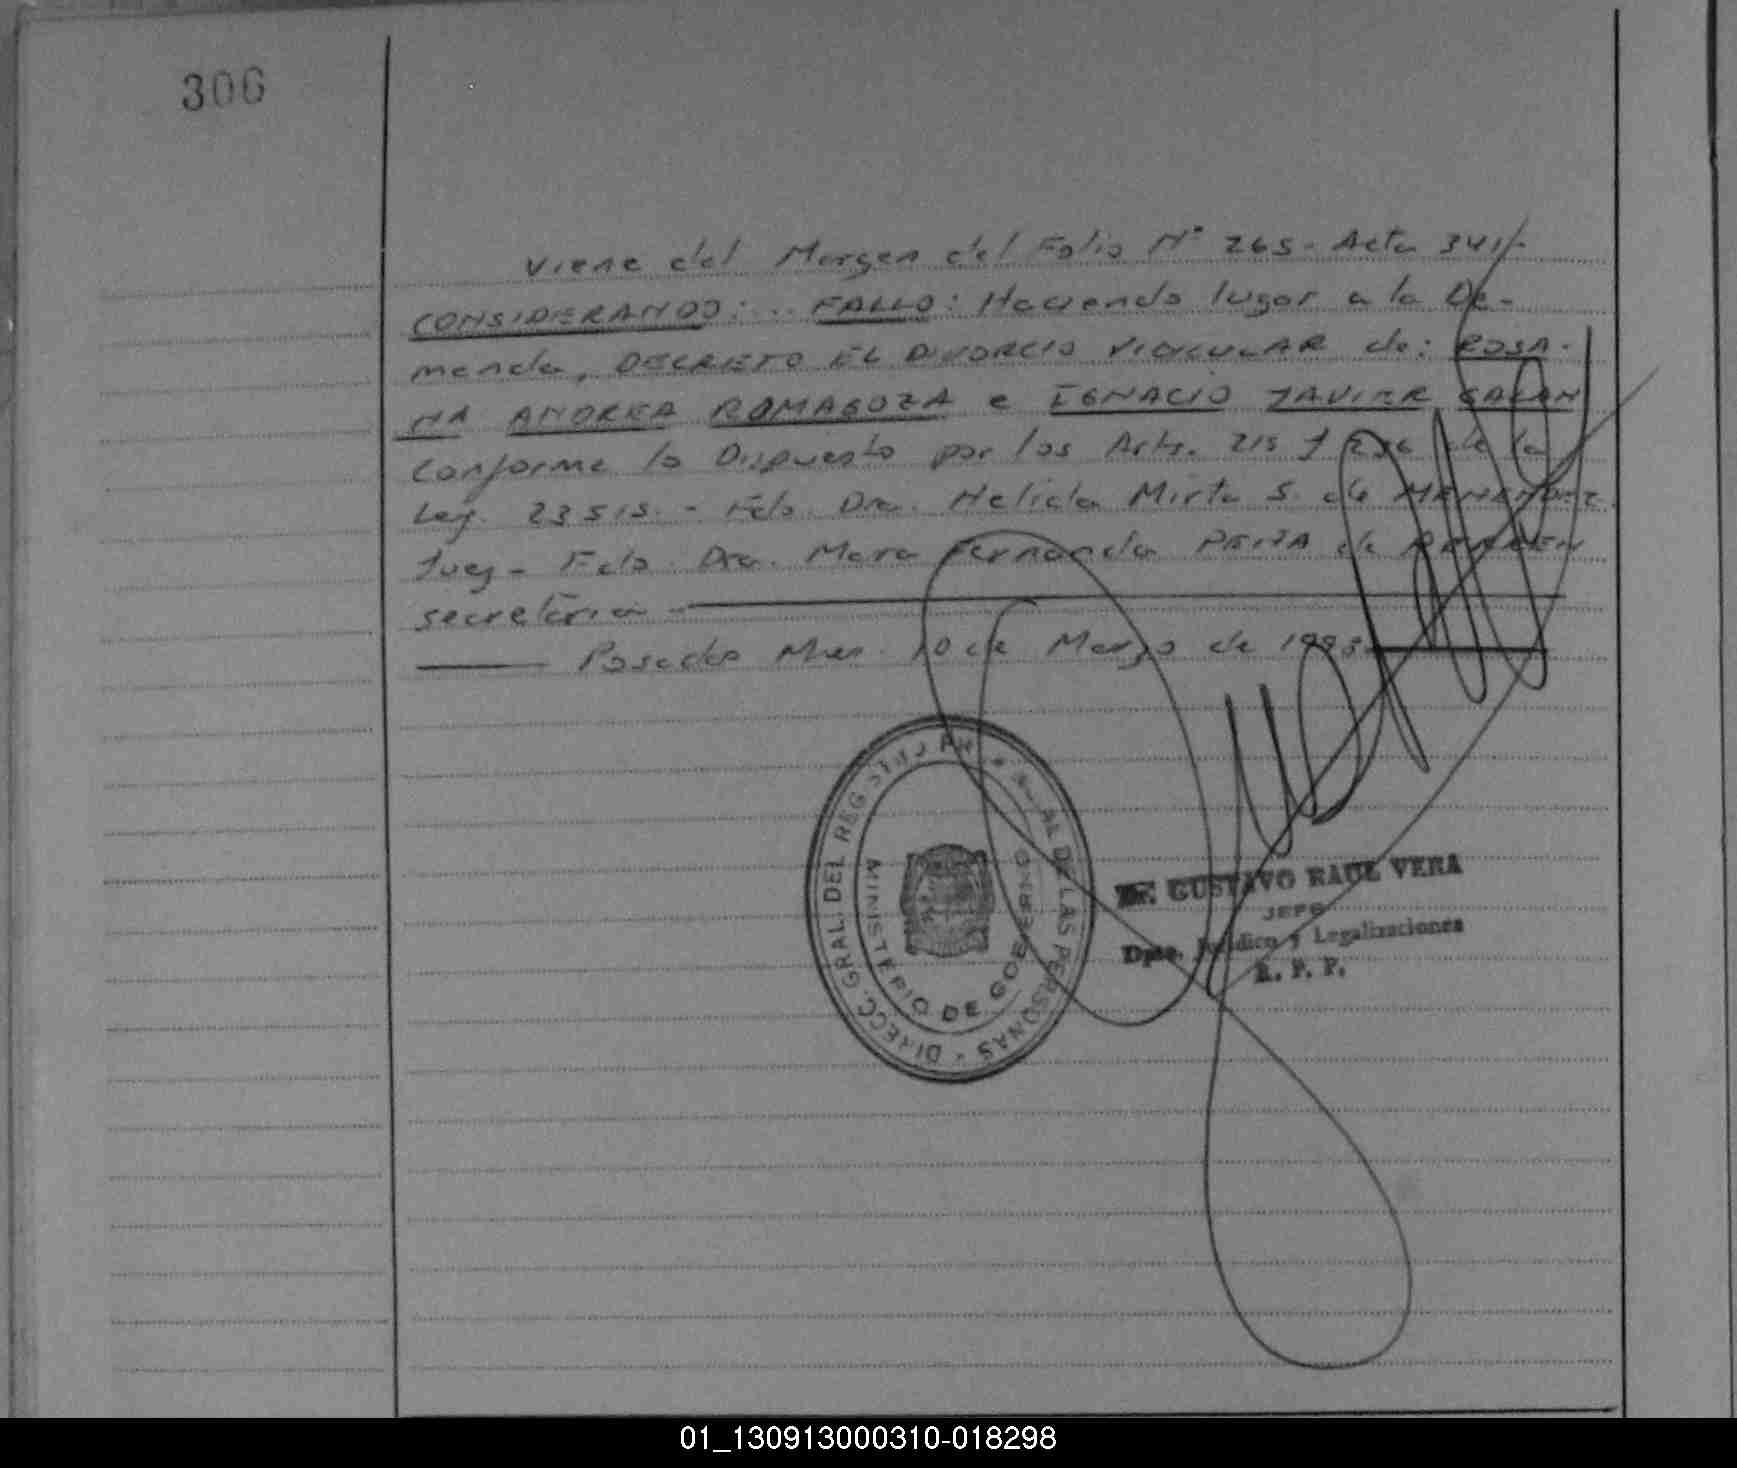 306
Viene del Margen del Folio N° 265 - Acta 341/-
CONSIDERANDO: ... FALLO: Haciendo lugar a la De-
manda, DECRETO EL DIVORCIO VINCULAR de: ROSA-
NA ANDREA ROMAGOZA e IGNACIO JAVIER GALAN
Conforme lo Dispuesto por los Arts. 215 y 236 de la
Ley. 23515. - Fdo. Dra. Helida Mirta S. de MENENDEZ
Juez - Fdo. Dra. Mara Fernanda PEÑA de
secretaria -
Posadas Mnes. 10 de Marzo de 1993
DIRECC. GRAL. DEL REGISTRO PROVINCIAL DE LAS PERSONAS
MINISTERIO DE GOBIERNO
Dr. GUSTAVO RAUL VERA
JEFE
Dpto. Jurídico y Legalizaciones
R. P. P.
01_130913000310-018298